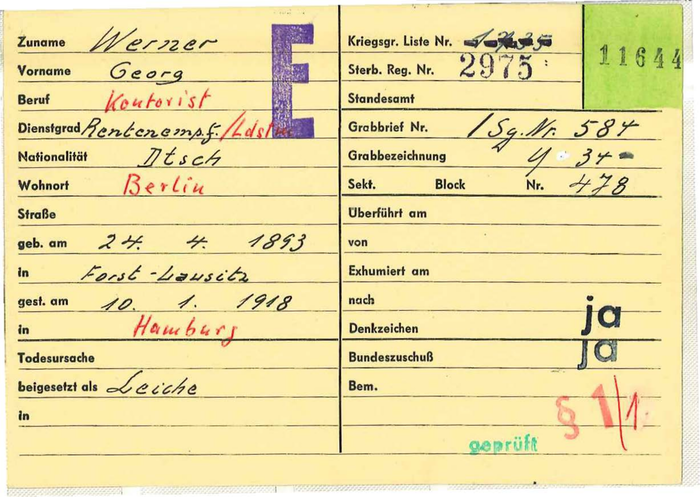 Zuname Werner
Vorname Georg
Beruf Kontorist
Dienstgrad Rentenempf. /Ldst
Nationalität Dtsch
Wohnort Berlin
Straße
geb. am 24. 4. 1893
in Forst-Lausitz
gest. am 10. 1. 1918
in Hamburg
Todesursache
beigesetzt als Leiche
in
E
Kriegsgr. Liste Nr.
Sterb. Reg. Nr. 2975
Standesamt
11644
Grabbrief Nr. /Sg. Nr. 584
Grabbezeichnung Y 34-
Sekt. Block Nr. 478
Überführt am
von
Exhumiert am
nach
Denkzeichen ja
Bundeszuschuß ja
Bem.
§ 1/1.
geprüft